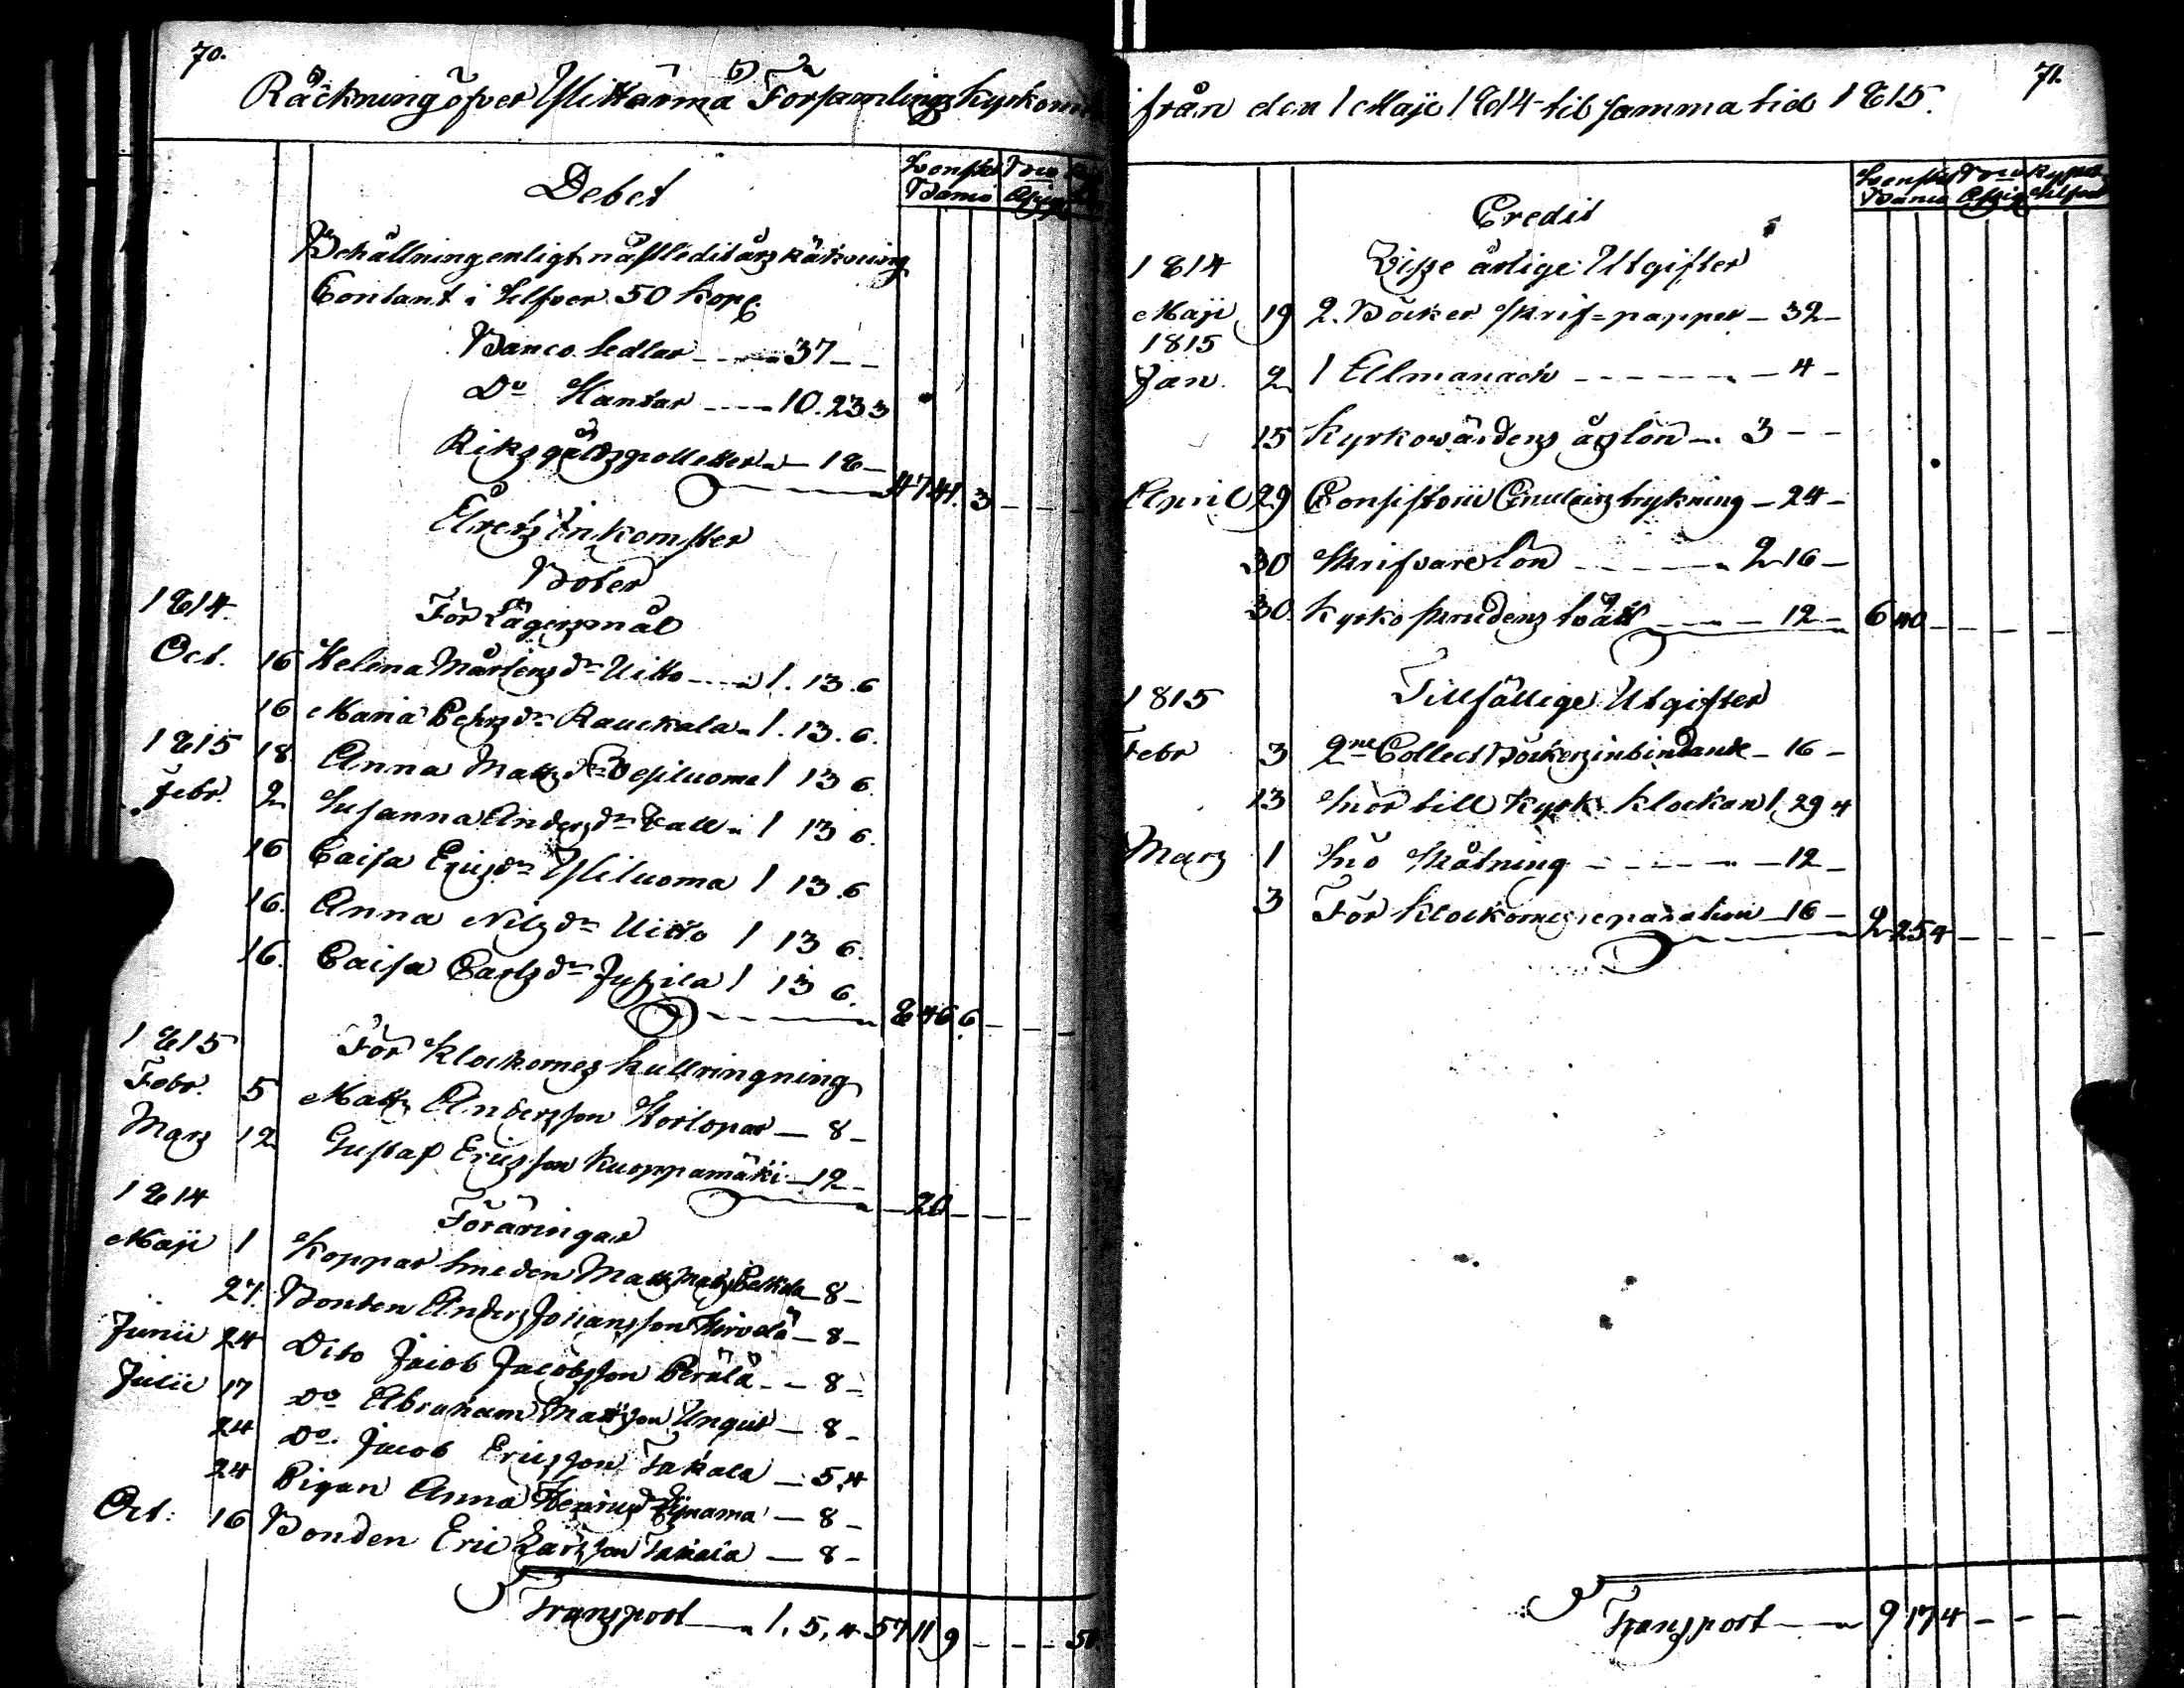 70.
Räckning öfver Ylistarma Församlings Kyrko
Debet
Svenskt Banco
Behållning enligt nästledit års räkning
Contant i Silfver 50 Kop.
Banco Sedlar - - - 37 - -
Do Slantar - - - 10. 23 3
Riksgäldspolletter - 18 - 47 41. 3 - - -
Årets Inkomster
Böter
1814. För Lägersmål
Oct. 16 Helena Mårtens dr Uitto - - - 1. 13. 6
16 Maria Pehrs dr Rauckala - 1. 13. 6.
1815 18 Anna Matts dr Vesiluoma 1 13 6.
Febr. 2 Susanna Anders dr Kall - 1 13 6.
16 Caisa Erics dr Yliluoma 1 13 6
16. Anna Nils dr Uitto 1 13 6.
16. Caisa Carls dr Jussila 1 13 6.
- - - 8 46 6. - - -
1815 För Klockornes kullringning
Febr. 5 Matts Andersson Kortopar - 8 -
Mars 12 Gustaf Ericsson Kuoppamäki - 12 -
- 20 - - -
1814 Föräringar
Maji 1 Kopparsmeden Matts Matts - 8 -
27. Bonden Anders Johansson Hirvelä - 8 -
Junii 24 Dito Jacob Jacobsson Perälä - - 8 -
Julii 17 Do Abraham Mattsson - 8 -
24 Do. Jacob Ericsson Takala - 5, 4
24 Pigan Anna Henrics dr - 8 -
Oct: 16 Bonden Eric Carlsson Takala - 8 -
Transport - - 1, 5, 4 57 11 9 - - - 50
71.
ifrån den 1 Maji 1814 til samma tid 1815.
Credit
Svenskt Banco
1814 Visse årlige Utgifter
Maji 19 2. Böcker Skrif=papper - 32 -
1815
Jan. 2 1 Allmanach - - - - - 4 -
15 Kyrkovärdens årslön - 3 - -
April 29 Consistorii Circulairs trykning - 24 -
30 Skrifvare Lön - - - - 2 16 -
30. Kyrko skrudens tvätt - - - 12 - 6 40 - - - -
1815 Tillfällige Utgifter
Febr 3 2ne Collect Böckers inbindande - 16 -
13 Snör till Kyrk klockan 1, 29 4
Mars 1 Snö Skåtning - - - - - 12 -
3 För Klockornes reparation - 16 - 2 25 4 - - - -
Transport - - - 9 17 4 - - -